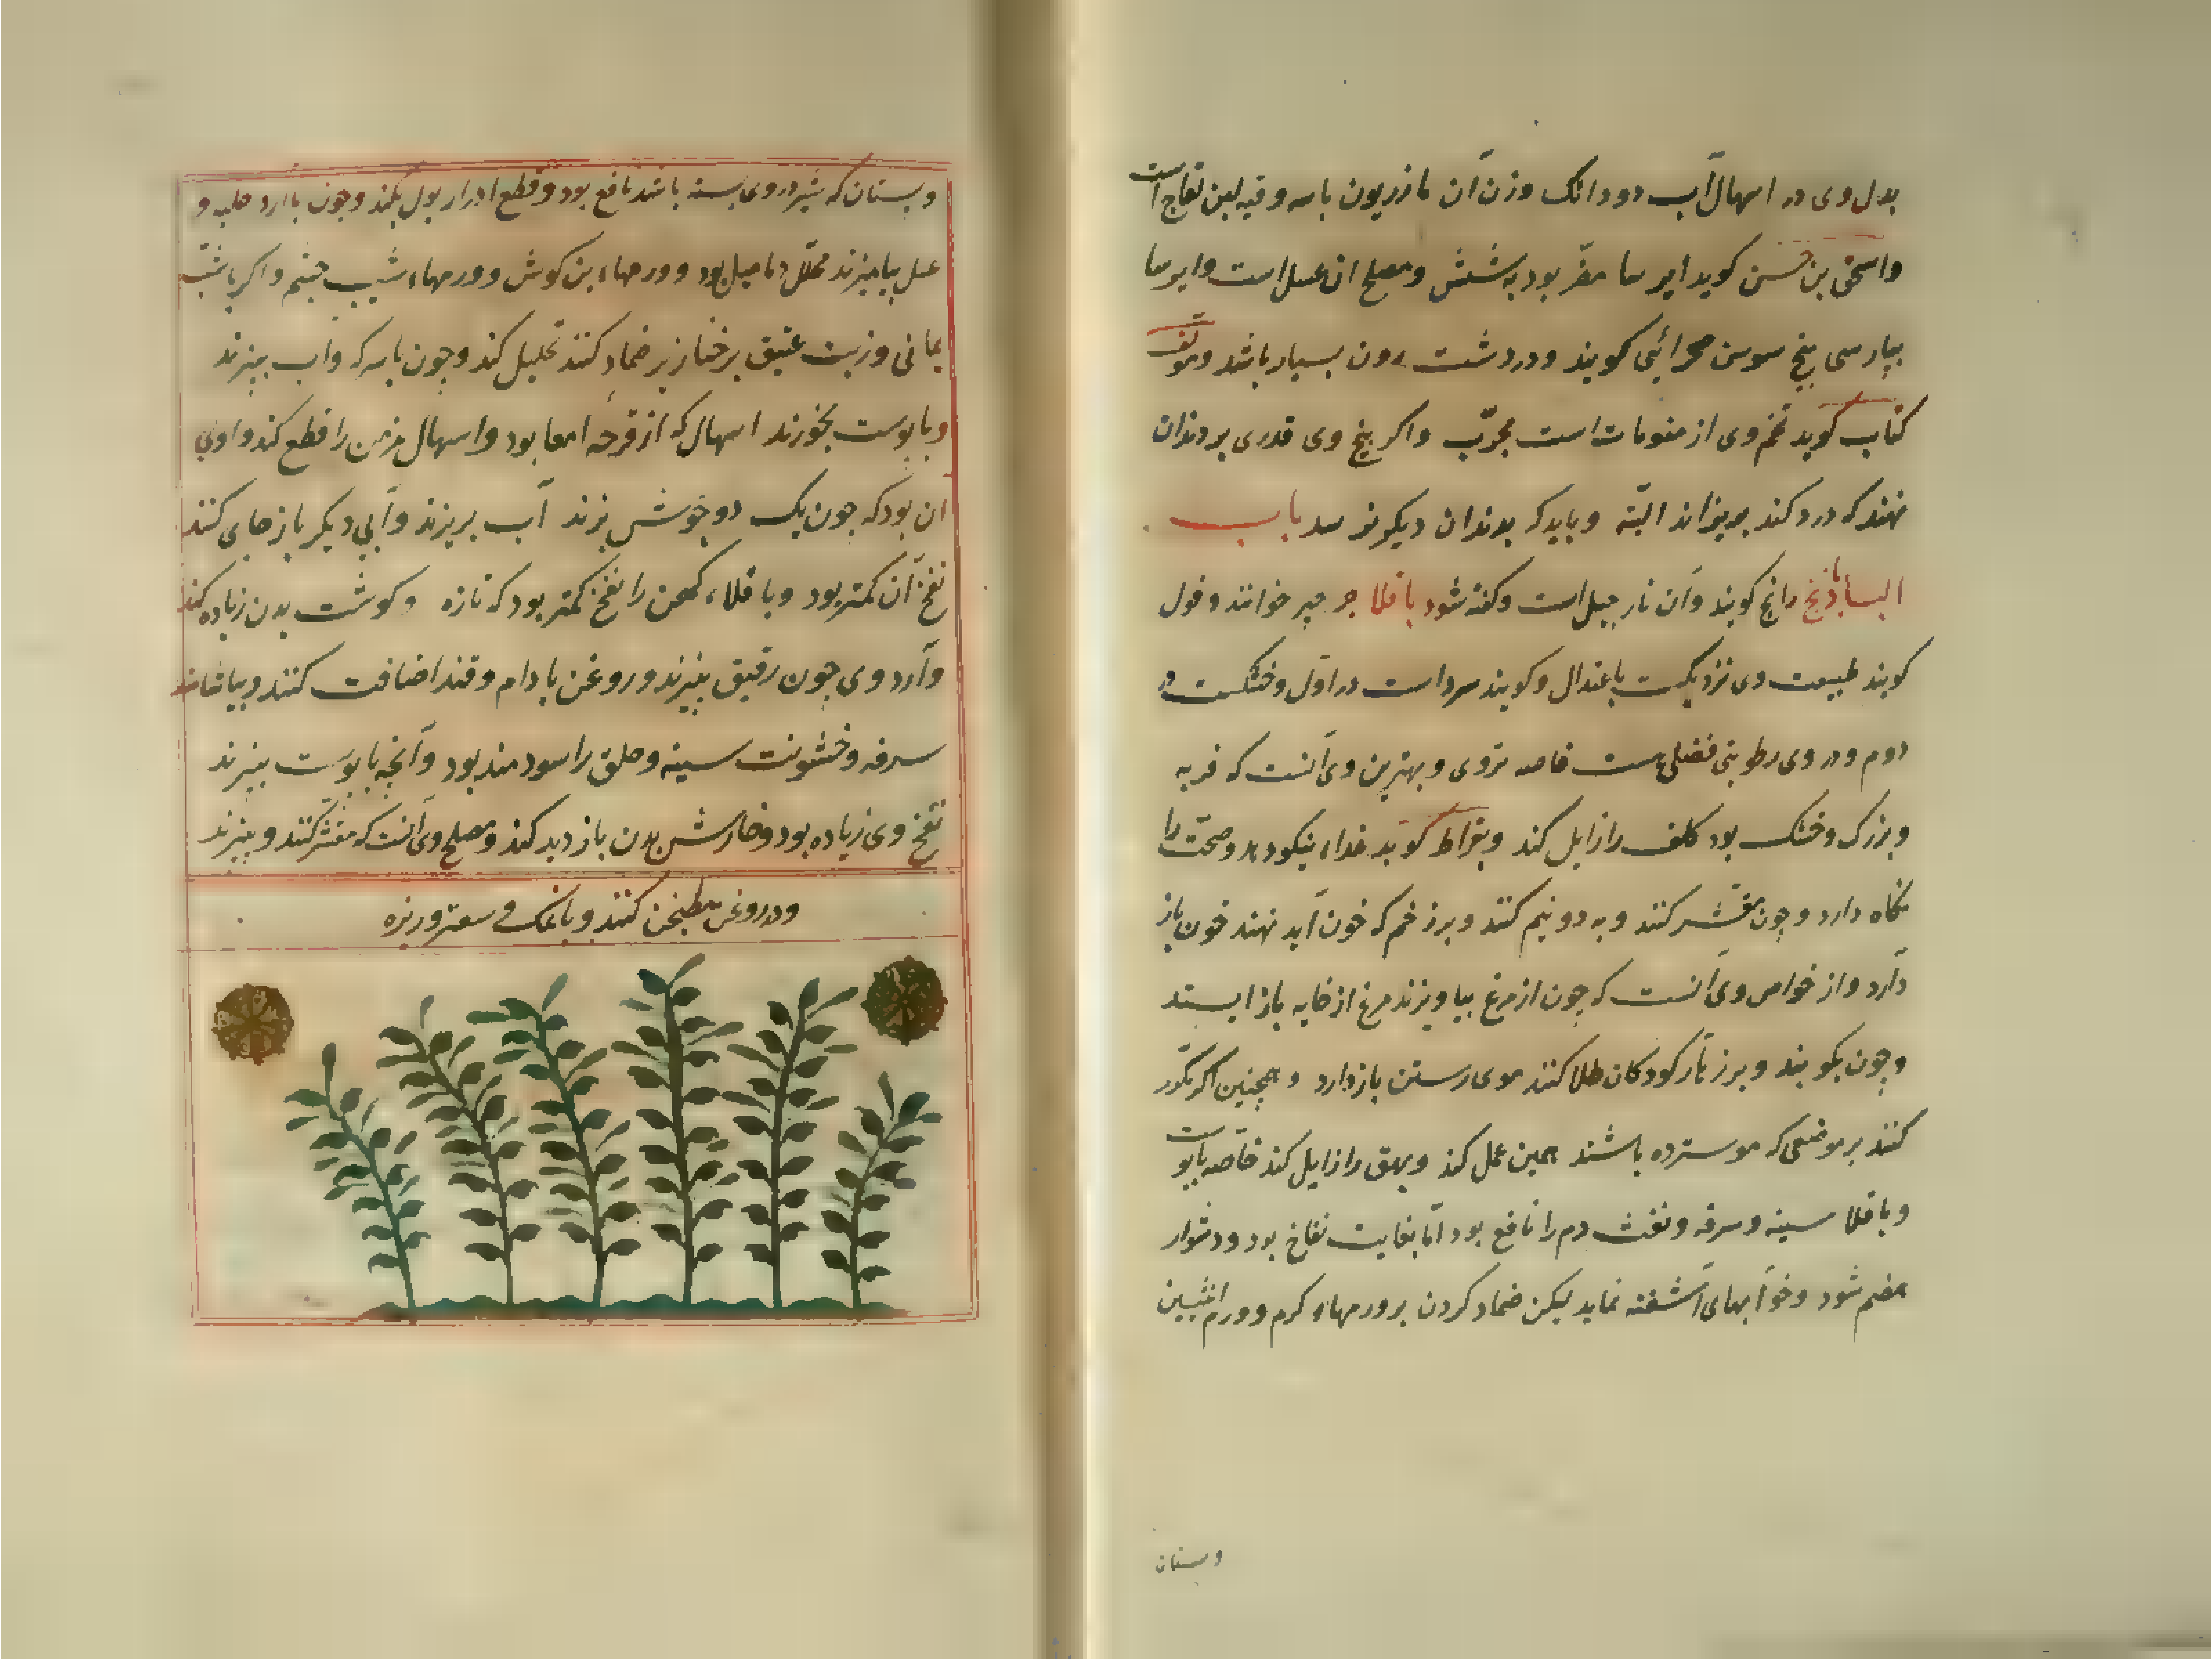 بدل وی در اسهال آب دو دانک وزن آن مازریون باسه وقیه لبن لقاح است
واسحق بن حسن کوید ایرسا مضر بود بشش ومصلح ان عسل است وایرسا
بپارسی بیخ سوسن صحرائی کویند ودر دشت رون بسیار باشد ومولف
کتاب کوید تخم وی از منومات است مجرّب واکر بیخ وی قدری بر دندان
نهند که درد کند بریزاند البتّه وباید که بدندان دیکر نرسد باب
البا باذنج رانج کویند وآن نارجیل است وکفته شود باقلا جرجر خوانند وفول
کویند طبیعت وی نزدیکست باعتدال وکویند سرد است در اول وخشکست در
دوم ودر وی رطوبتی فضلی هست خاصه تروی وبهترین وی آنست که فربه
وبزرک وخشک بود کلف را زایل کند وبقراط کوید غذاء نیکو دهد وصحّت را
نکاه دارد وچون مقشر کنند وبه دو نیم کنند وبر زخم که خون آید نهند خون باز
دارد واز خواص وی آنست که چون از مرغ بیاویزند مرغ از خایه باز ایستد
وچون بکوبند وبر زهار کودکان طلا کنند موی رستن باز دارد وهمچنین اکر مکرّر
کنند بر موضعی که مو سترده باشند همین عمل کند وبهق را زایل کند خاصه باپوست
وباقلا سینه وسرفه ونفث دم را نافع بود امّا بغایت نفاخ بود ودشوار
هضم شود وخوابهای آشفته نماید لیکن ضماد کردن بر ورمهاء کرم وورم انثیین
وبستان
وبستان که شیر در وی بسته باشد نافع بود وقطع ادرار بول بکند وچون باآرد حلبه و
عسل بیامیزند محلّل دمامیل بود وورمهاء بن کوش وورمهاء شیب چشم واکر باشب
یمانی وزیت عتیق بر خنازیر ضماد کنند تحلیل کند وچون باسرکه وآب بپزند
وباپوست بخورند اسهال که از قرحه امعا بود واسهال مزمن را قطع کند واولی
آن بود که چون یک دو جوش بزند آب بریزند وآبی دیکر باز جای کنند
نفخ آن کمتر بود وباقلاء کهن را نفخ کمتر بود که تازه وکوشت بدن زیاده کند
وآرد وی چون رقیق بپزند وروغن بادام وقند اضافت کنند وبیاشامند
سرفه وخشونت سینه وحلق را سودمند بود وآنچه باپوست بپزند
نفخ وی زیاده بود وخارش بدن بازدید کند ومصلح وی آنست که مقشر کنند وبپزند
ودر وغن مطبخن کنند وبانمک و سعتر وزیره